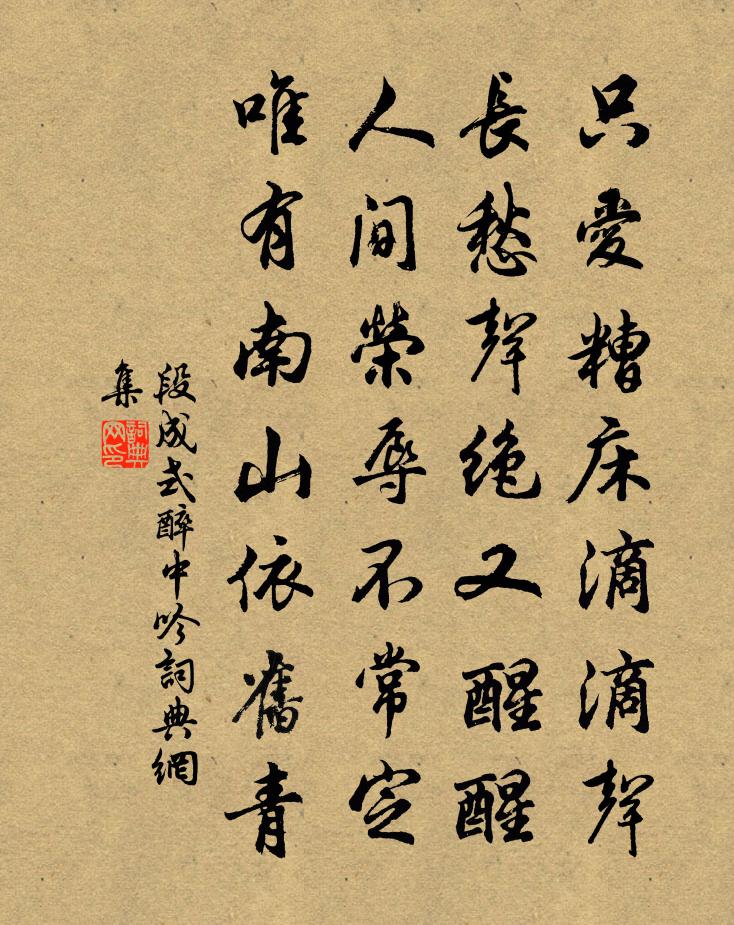 只愛糟床滴滴聲
長愁聲絶又醒醒
人间榮辱不常定
唯有南山依舊青
段成式醉中吟詞典網
集
詞典
网印